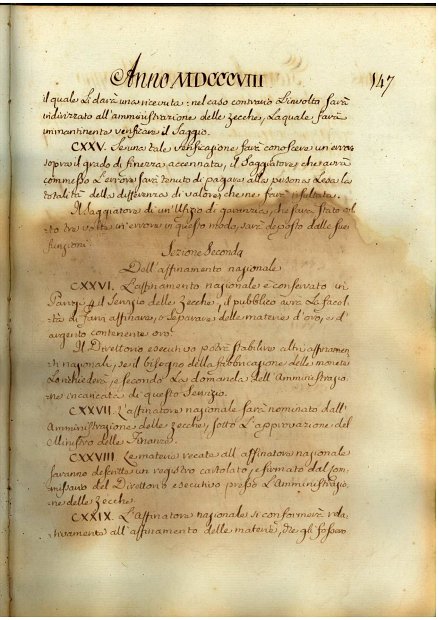 Anno MDCCCVIII 147
il quale Li darà una ricevuta: nel caso contrario L'involto sarà
indirizzato all'amministrazione delle Zecche, La quale farà
immantinente verificare il Saggio.
CXXV. Se una tale verificazione farà conoscere un errore
sopra il grado di finezza accennata, il Saggiatore che avrà
commesso L'errore sarà tenuto di pagare alla persona Lesa la
totalità della differenza di valore, che ne sarà risultata.
Il Saggiatore di un Ufizio di garanzia, che sarà stato
to tre volte in errore in questo modo, sarà deposto dalle sue
funzioni.
Sezione Seconda
Dell'affinamento nazionale
CXXVI. L'affinamento nazionale è conservato in
Parigi pel Servigio delle Zecche, il pubblico avrà La facol
tà di farvi affinare, o separare delle materie d'oro, e d'
argento contenente oro.
Il Direttorio esecutivo potrà stabilire altri affinamen
ti nazionali, se il bisogno della fabbricazione delle monete
Lo richiederà, e secondo La domanda dell'Amministrazio
ne incaricata di questo Servizio.
CXXVII. L'affinatore nazionale sarà nominato dall'
Amministrazione delle Zecche, sotto L'approvazione del
Ministro delle Finanze.
CXXVIII. Le materie recate all'affinatore nazionale
saranno descritte in registro cartolato, e firmato dal Com
missario del Direttorio esecutivo presso L'Amministrazio
ne delle Zecche.
CXXIX. L'affinatore nazionale si conformerà rela
tivamente all'affinamento delle materie, che gli fossero